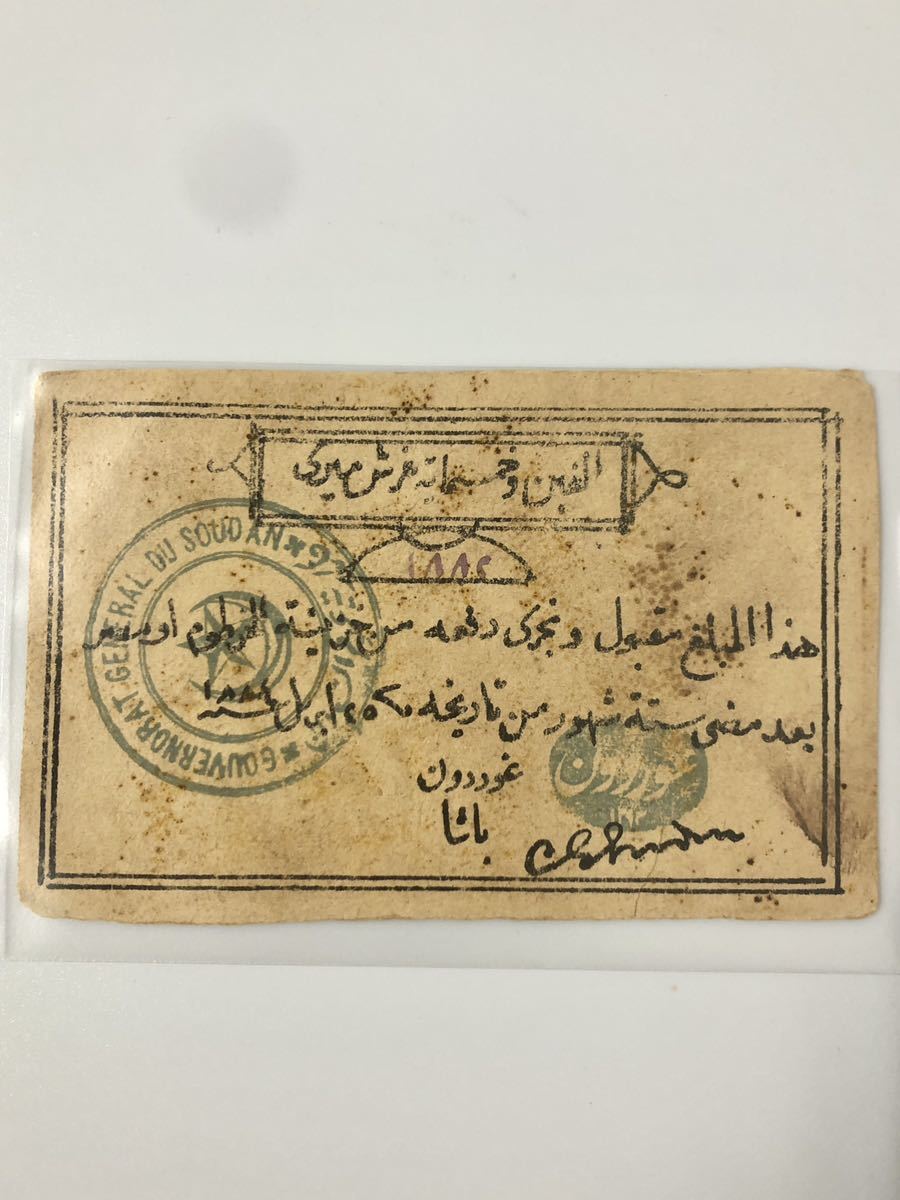 الفين وخمسماية غرش ميرى
١٨٨٢
هذا المبلغ مقبول ونجرى دفعه من خزينة الخرطوم او مصر
بعد مضى ستة شهور من تاريخه ٢٥ ابريل سنة ١٨٨٤
غوردون
باشا
GOUVERNORAT GENERAL DU SOUDAN